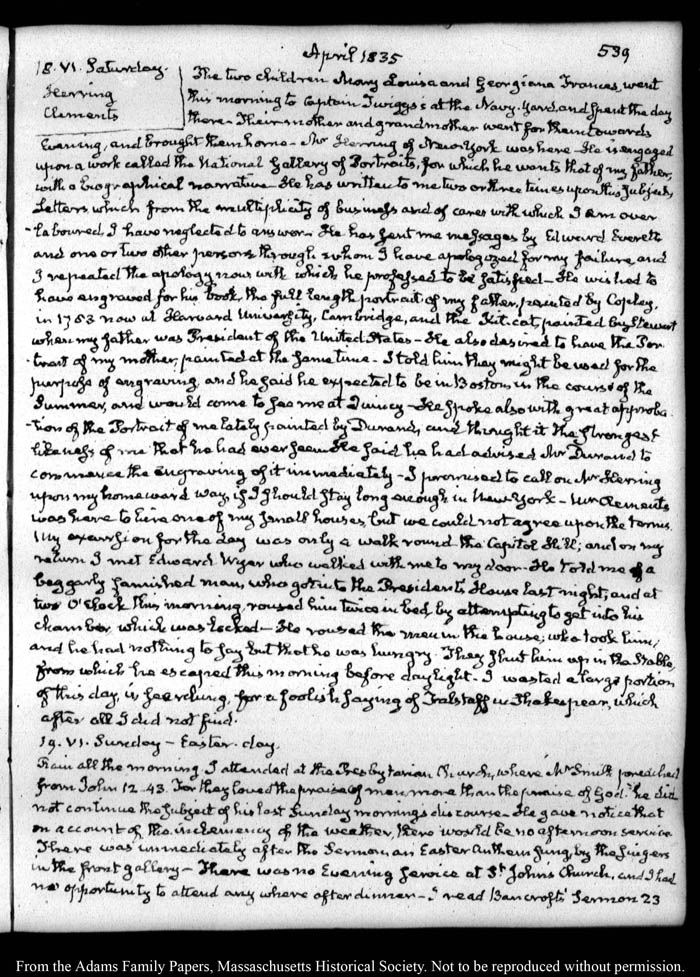 April 1835
539
18. VI. Saturday.
Herring
Clements
The two children Mary Louisa and Georgiana Frances, went
this morning to Captain Twiggs's at the Navy-Yard, and spent the day
there. Their mother and grandmother went for them towards
Evening, and brought them home. Mr Herring of New-York was here. He is engaged
upon a work called the National Gallery of Portraits, for which he wants that of my father,
with a biographical narrative. He has written to me two or three times upon this subject,
Letters which from the multiplicity of business and of cares with which I am over
-laboured, I have neglected to answer. He has sent me messages by Edward Everett
and one or two other persons through whom I have apologized for my failure, and
I repeated the apology now with which he professed to be satisfied. He wished to
have engraved for his book, the full length portrait of my father, painted by Copley,
in 1783 now at Harvard University, Cambridge, and the Kit-cat painted by Stewart
when my father was President of the United States. He also desired to have the Por-
-trait of my mother, painted at the same time. I told him they might be used for the
purpose of engraving, and he said he expected to be in Boston, in the course of the
Summer, and would come to see me at Quincy. He spoke also with great approba
-tion of the Portrait of me lately painted by Durand, and thought it the strongest
likeness of me that he had ever seen. He said he had advised Mr Durand to
commence the engraving of it immediately. I promised to call on Mr Herring
upon my homeward way, if I should stay long enough in New-York. Mr Clements
was here to hire one of my small houses, but we could not agree upon the terms.
My excursion for the day was only a walk round the Capitol Hill; and on my
return I met Edward Wyer who walked with me to my door. He told me of a
beggarly famished man, who got into the President's House last night, and at
two O'Clock this morning, roused him twice in bed, by attempting to get into his
chamber, which was locked. He roused the men in the house, who took him,
and he had nothing to say but that he was hungry. They shut him up in the stable,
from which he escaped this morning before daylight. I wasted a large portion
of this day, in searching, for a foolish saying of Falstaff in Shakespear, which
after all I did not find.
19. VI. Sunday - Easter-day.
Rain all the morning. I attended at the Presbyterian Church, where Mr Smith preached
from John 12.43. For they loved the praise of men more than the praise of God." he did
not continue the subject of his last Sunday morning's discourse. He gave notice that
on account of the inclemency of the weather, there would be no afternoon service.
There was immediately after the Sermon, an Easter Anthem sung, by the singers
in the front gallery. There was no Evening service at St Johns Church, and I had
no opportunity to attend any where after dinner. I read Bancroft's Sermon 23
From the Adams Family Papers, Massachusetts Historical Society. Not to be reproduced without permission.